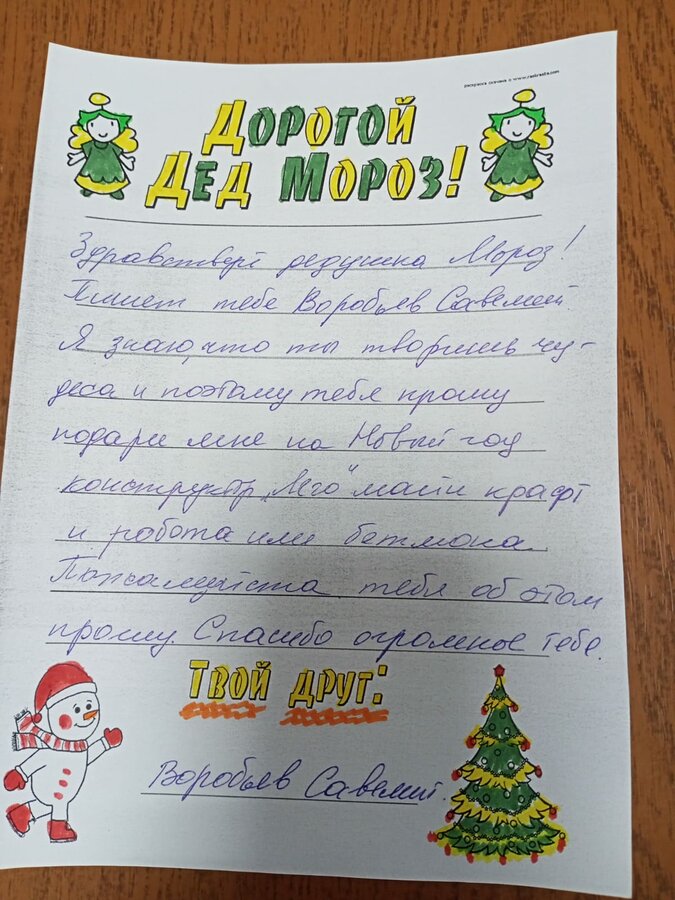 раскраска скачана с www.raskraska.com
ДОРОГОЙ
ДЕД МОРОЗ!
Здравствуй дедушка Мороз!
Пишет тебе Воробьев Савелий.
Я знаю, что ты творишь чу-
деса и поэтому тебя прошу
подари мне на Новый год
конструктор „Лего" майн крафт
и робота или бетмона.
Пожалуйста тебя об этом
прошу. Спасибо огромное тебе.
ТВОЙ ДРУГ:
Воробьев Савелий.